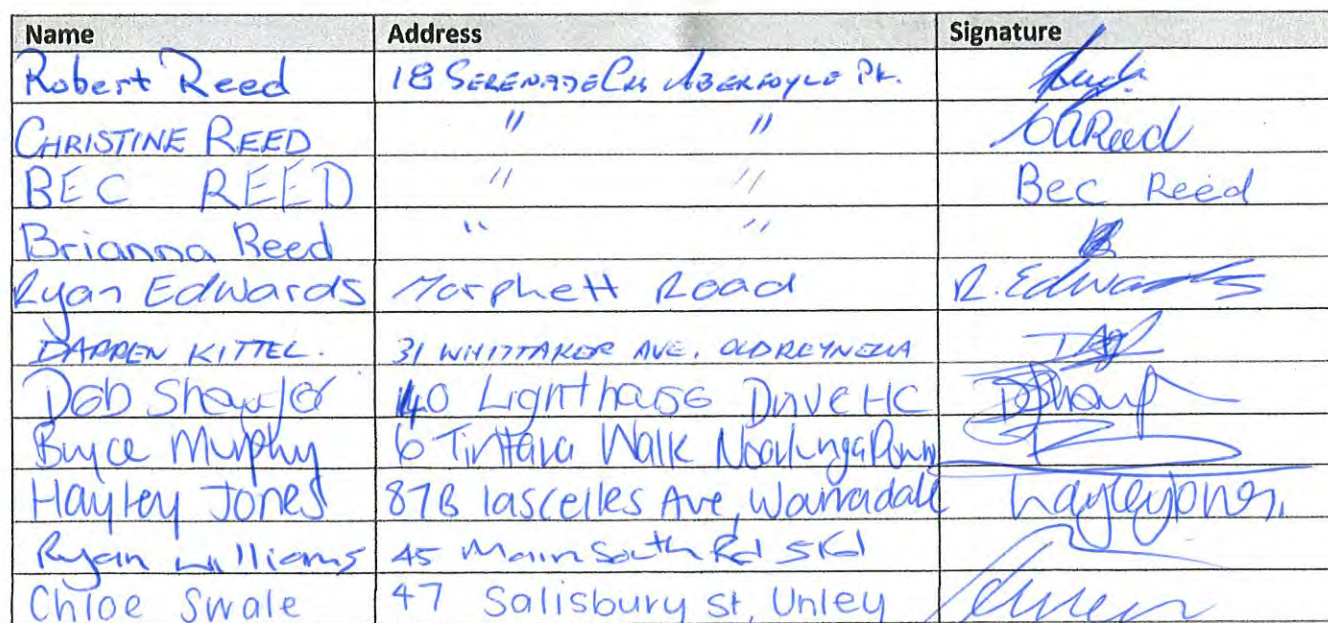 Name Address Signature
Robert Reed 18 SERENADE CRS ABERFOYLE PK.
CHRISTINE REED " " CAReed
BEC REED " " Bec Reed
Brianna Reed " "
Ryan Edwards Morphett Road R. Edwards
DARREN KITTEL. 31 WHITTAKER AVE, OLD REYNELLA
Deb 40 Lighthouse Drive HC
Bryce Murphy 6 Tintara Walk Noarlunga Down
Hayley Jones 87B lascelles Ave, Warradale hayleyjones,
Ryan Williams 45 Main South Rd
Chloe Swale 47 Salisbury st, Unley